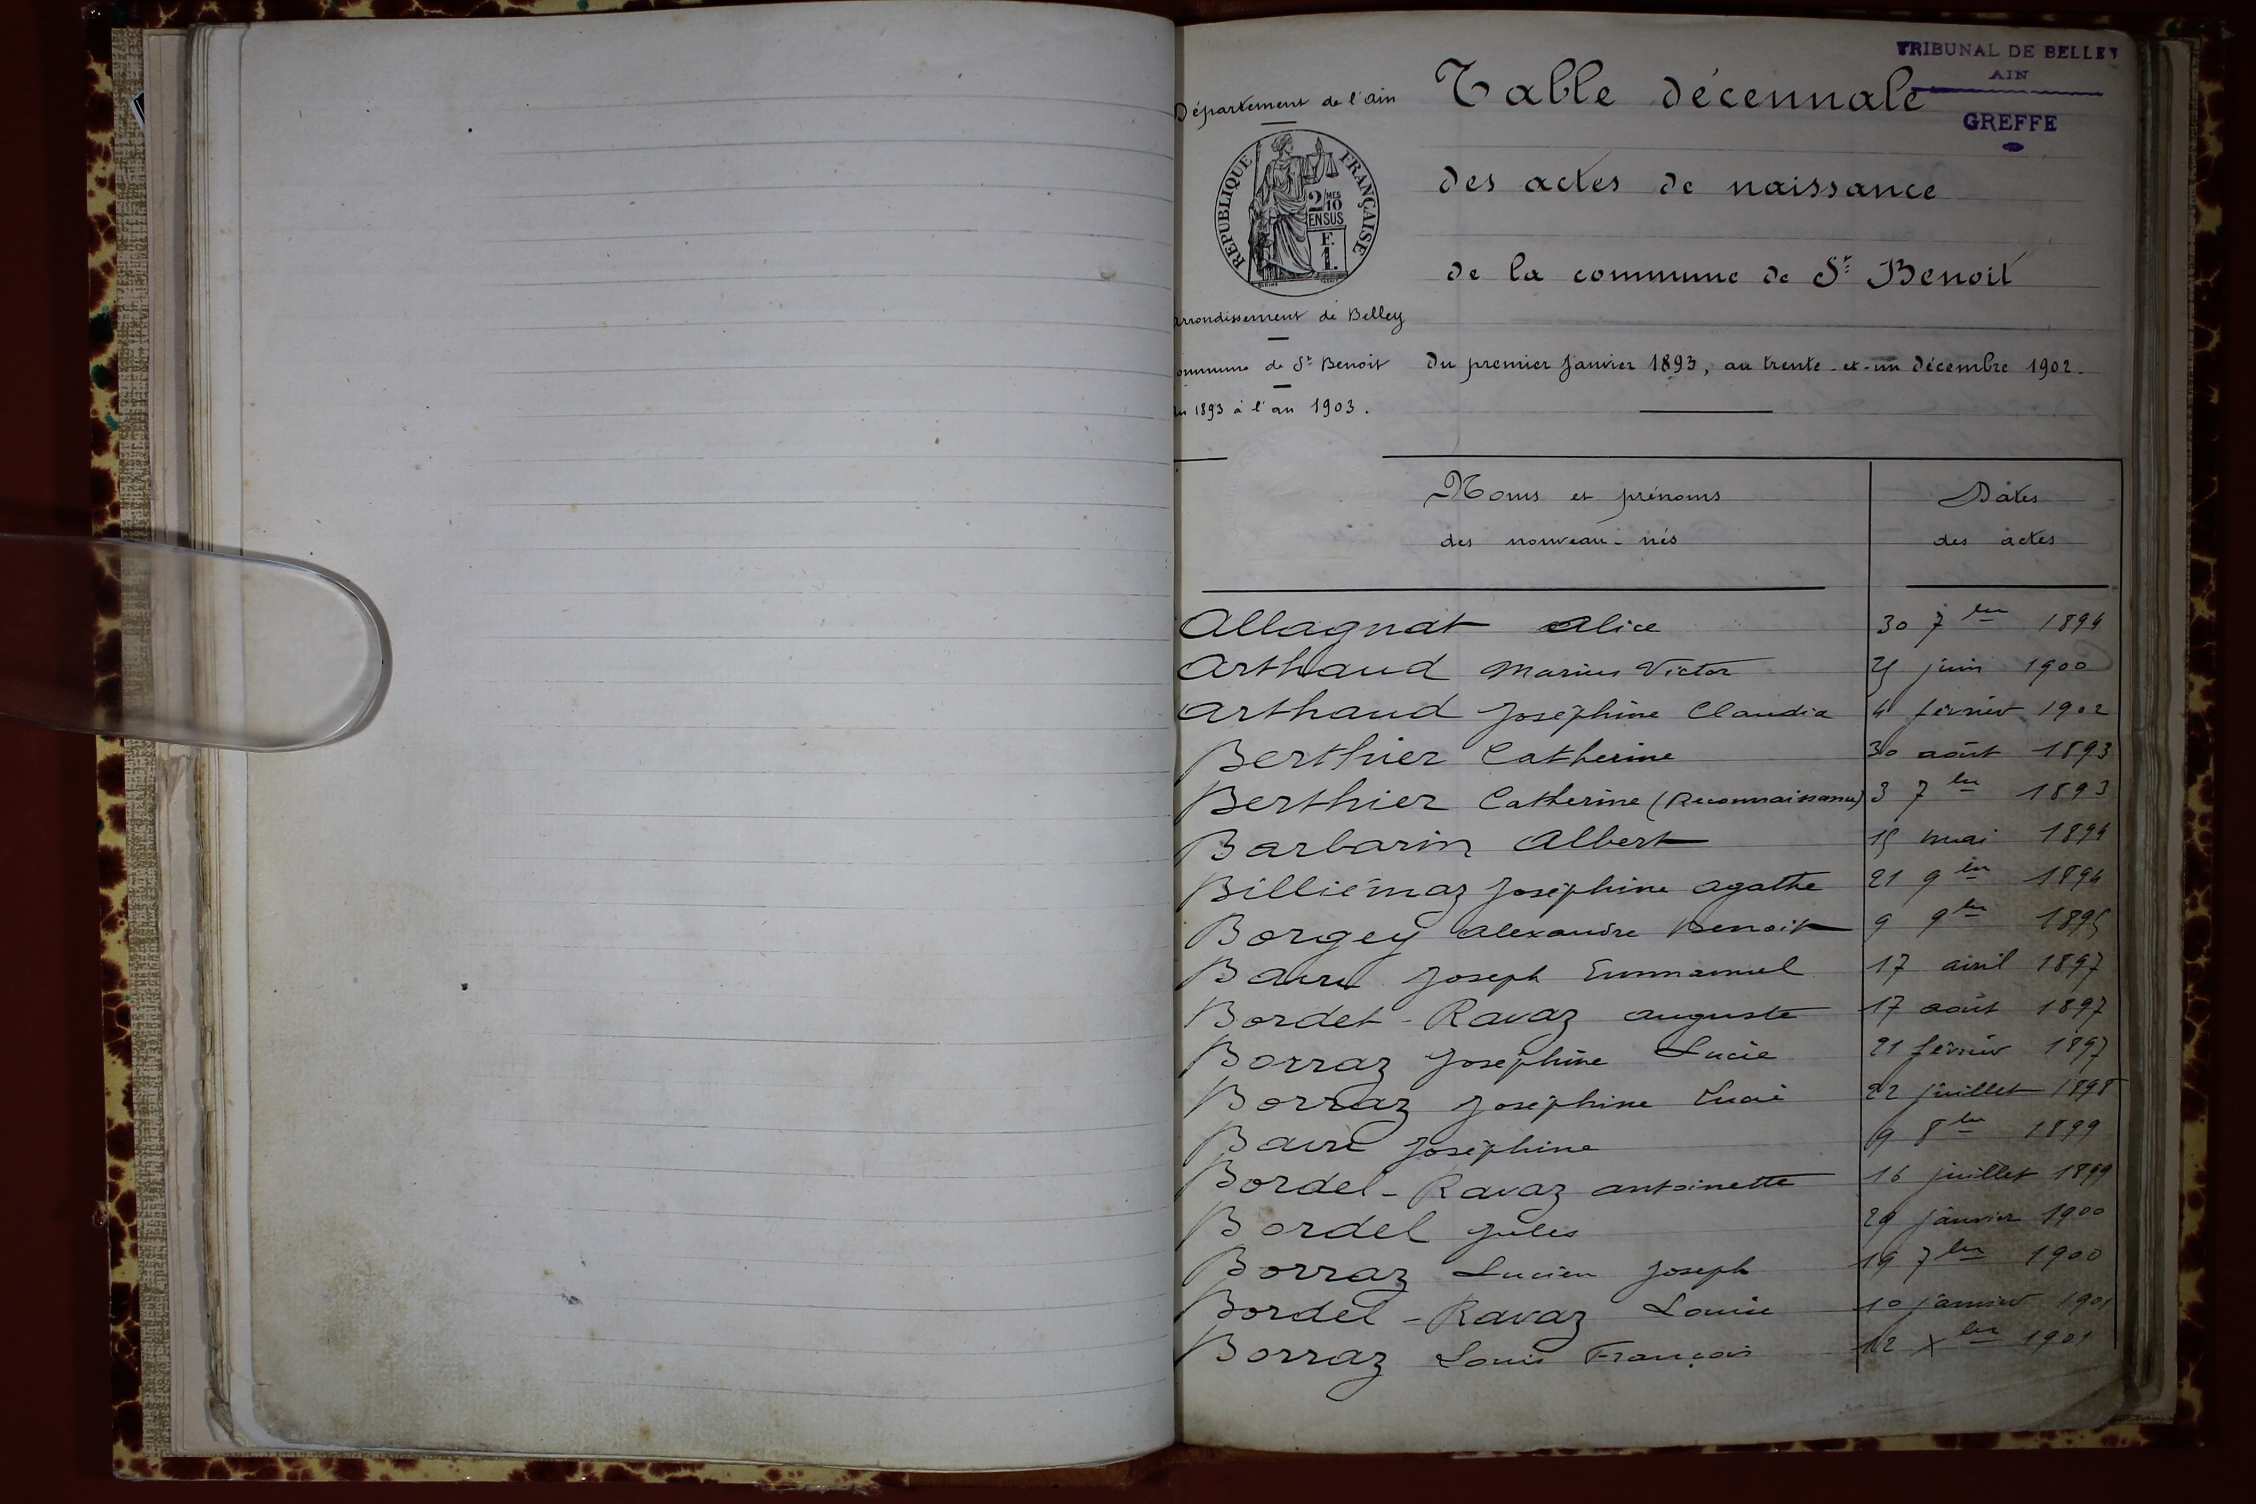 TRIBUNAL DE BELLEY
AIN
GREFFE
Département de l'ain
Table décennale
RÉPUBLIQUE FRANÇAISE
2/10 MES
EN SUS
F.
1.
des actes de naissance
de la commune de St Benoit
arrondissement de Belley
ommune de St Benoit
du premier janvier 1893, au trente-et-un décembre 1902.
1893 à l'an 1903.
Noms et prénoms
des nouveau-nés
Dates
des actes
Allagnat Alice 30 7bre 1894
Arthaud Marius Victor juin 1900
Arthaud Joséphine Claudia 4 février 1902
Berthier Catherine 30 août 1893
Berthier Catherine (Reconnaissance) 3 7bre 1893
Barbarin Albert 15 mai 1894
Billiémaz Joséphine Agathe 21 9bre 1894
Borgey Alexandre Benoit 9 9bre 1895
Joseph Emmanuel 17 avril 1897
Bordet-Ravaz Auguste 17 août 1897
Borraz Joséphine Lucie 21 février 1897
Borraz Joséphine Lucie 22 juillet 1898
Joséphine 9 8bre 1899
Bordel-Ravaz Antoinette 16 juillet 1899
Bordel Jules 29 janvier 1900
Borraz Lucien Joseph 19 7bre 1900
Bordel-Ravaz Louise 10 janvier 1901
Borraz Louis François 12 Xbre 1901